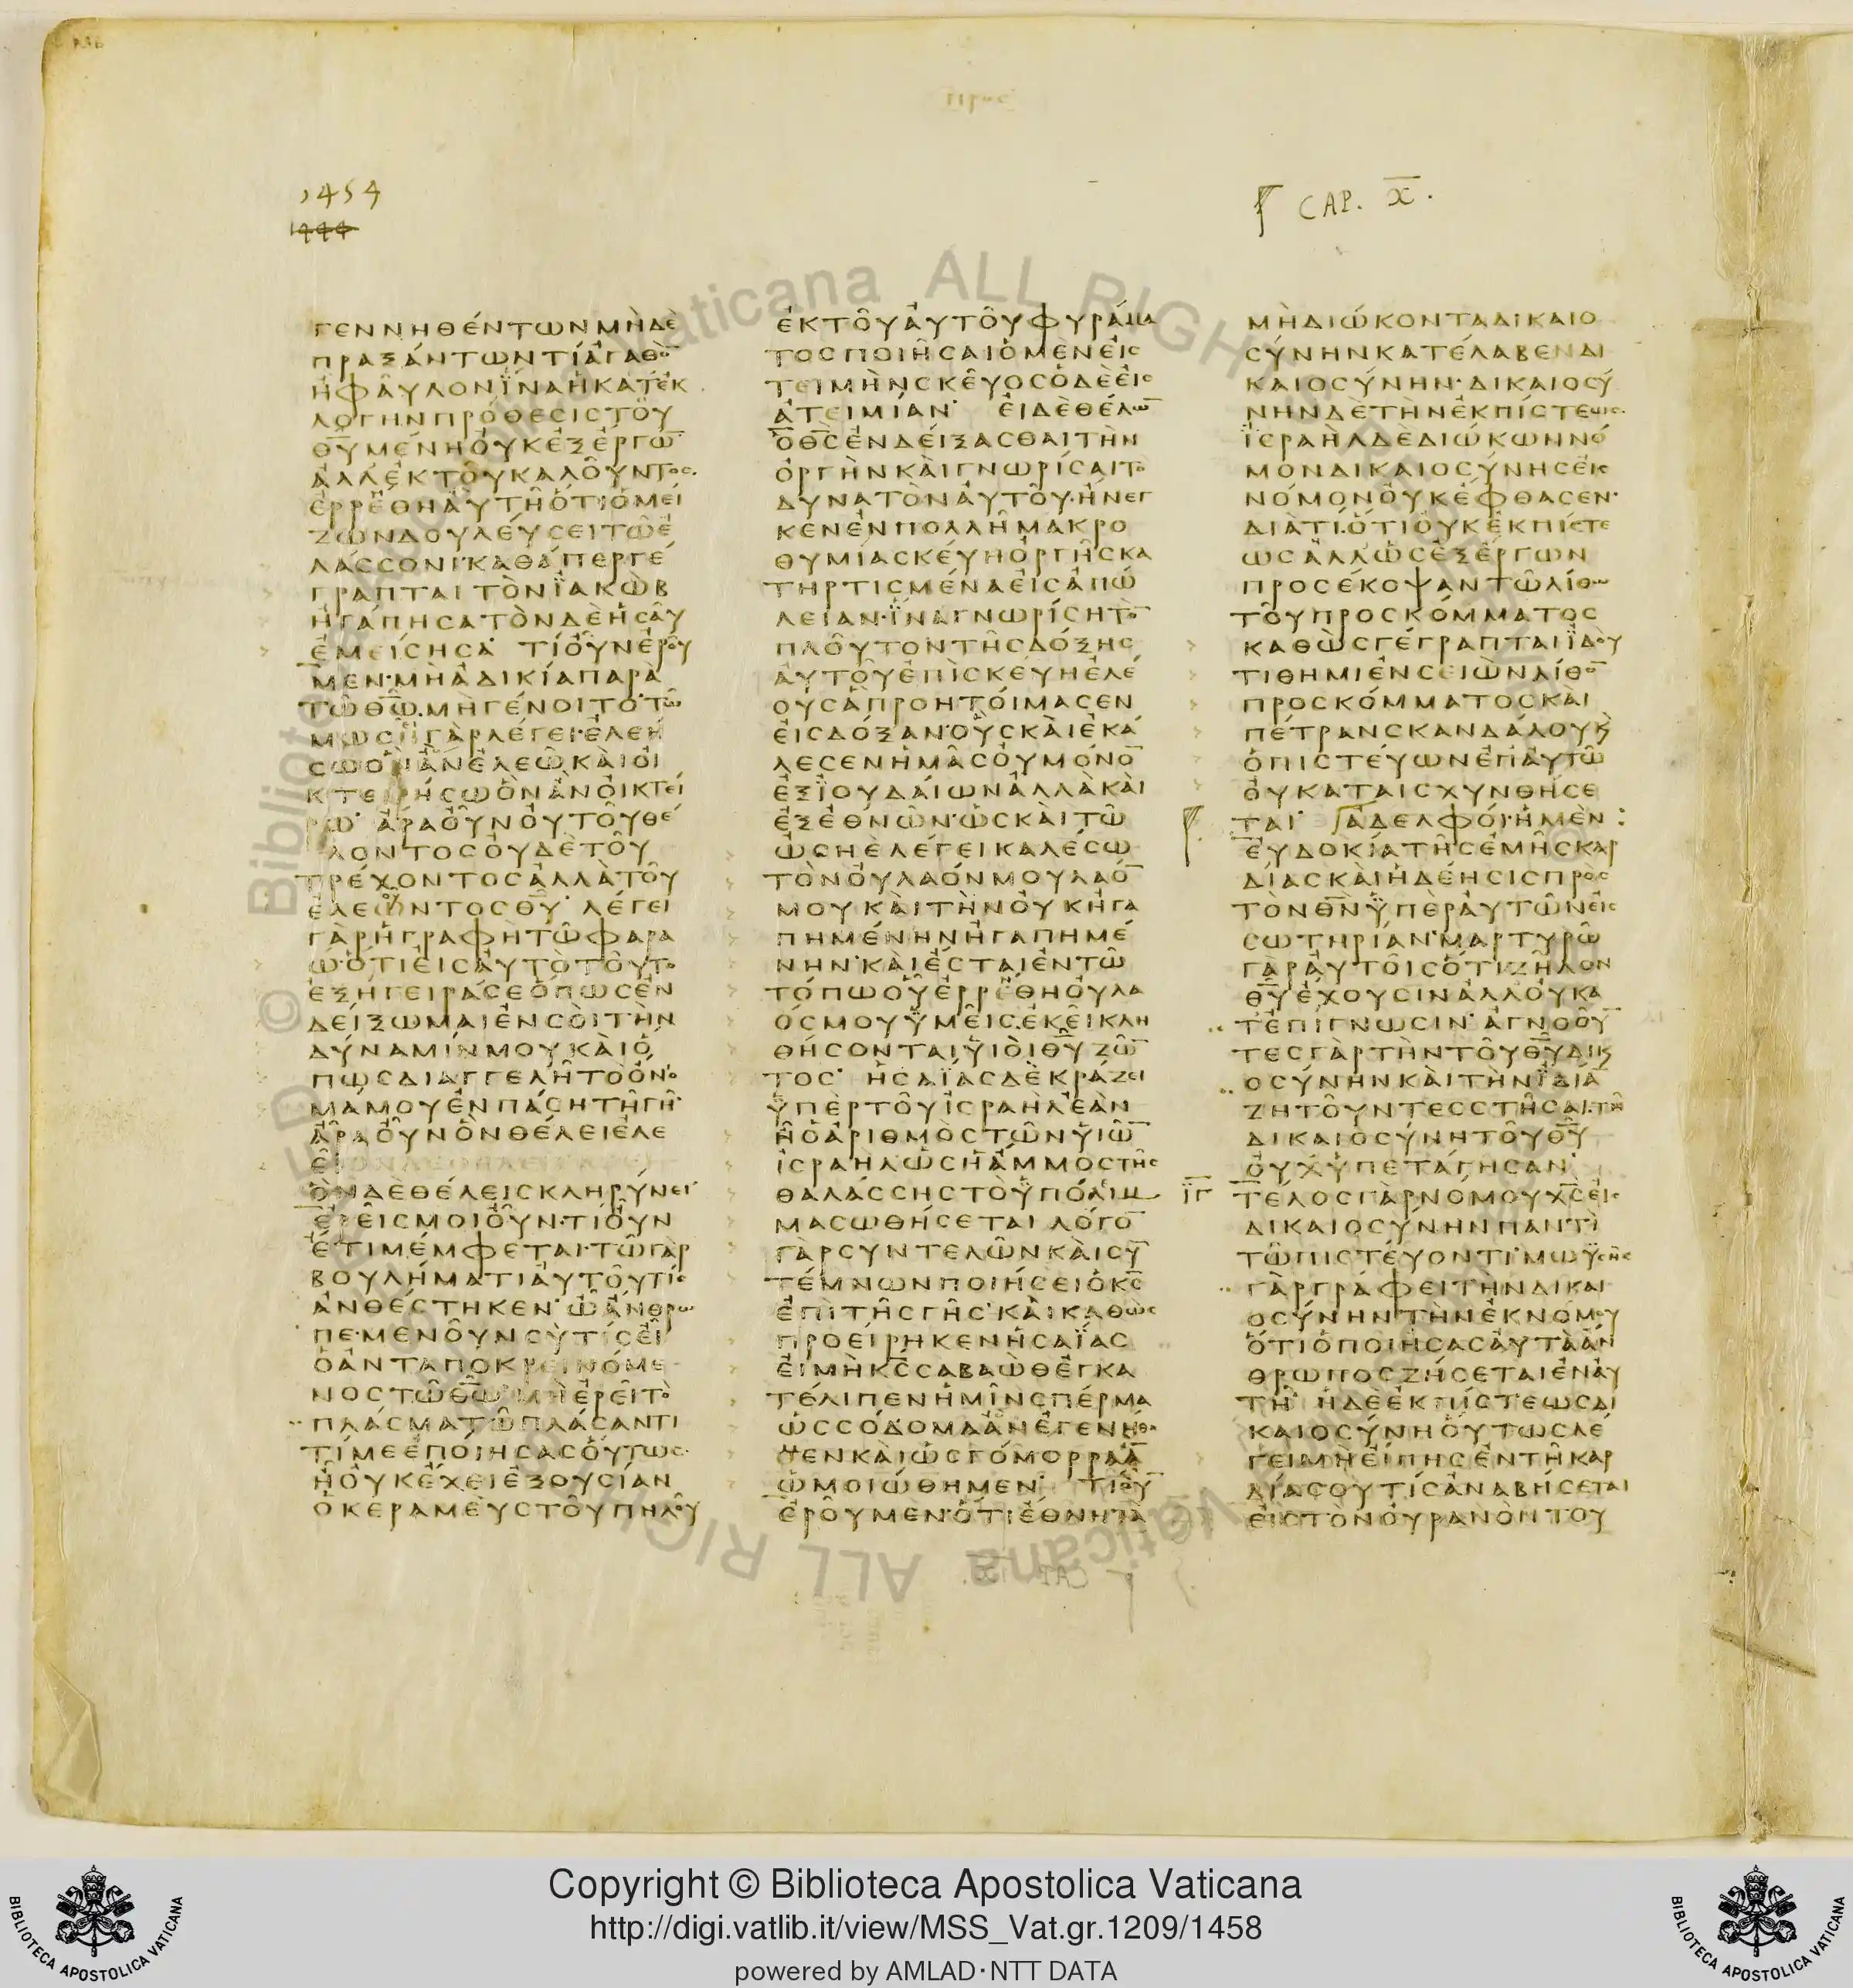 1454
1444
CAP. X.
ΓΕΝΝΗΘΕΝΤΩΝΜΗΔΕ
ΠΡΑΞΑΝΤΩΝΤΙΑΓΑΘΟ̅
ΗΦΑΥΛΟΝΙΝΑΗΚΑΤΕΚ
ΛΟΓΗΝΠΡΟΘΕΣΙΣΤΟΥ
Θ̅Υ̅ΜΕΝΗΟΥΚΕΞΕΡΓΩ̅
ΑΛΛΕΚΤΟΥΚΑΛΟΥΝΤΟΣ
ΕΡΡΕΘΗΑΥΤΗΟΤΙΟΜΕΙ
ΖΩΝΔΟΥΛΕΥΣΕΙΤΩΕ
ΛΑΣΣΟΝΙ·ΚΑΘΑΠΕΡΓΕ
ΓΡΑΠΤΑΙΤΟΝΙΑΚΩΒ
ΗΓΑΠΗΣΑΤΟΝΔΕΗΣΑΥ
ΕΜΕΙΣΗΣΑ ΤΙΟΥΝΕΡΟΥ
ΜΕΝ·ΜΗΑΔΙΚΙΑΠΑΡΑ
ΤΩΘ̅Ω̅·ΜΗΓΕΝΟΙΤΟ·ΤΩ
ΜΩΣΗΓΑΡΛΕΓΕΙ·ΕΛΕΗ
ΣΩΟΝΑΝΕΛΕΩΚΑΙΟΙ
ΚΤΕΙΡΗΣΩΟΝΑΝΟΙΚΤΕΙ
ΡΩ· ΑΡΑΟΥΝΟΥΤΟΥΘΕ
ΛΟΝΤΟΣΟΥΔΕΤΟΥ
ΤΡΕΧΟΝΤΟΣΑΛΛΑΤΟΥ
ΕΛΕΩΝΤΟΣΘ̅Υ̅· ΛΕΓΕΙ
ΓΑΡΗΓΡΑΦΗΤΩΦΑΡΑ
Ω·ΟΤΙΕΙΣΑΥΤΟΤΟΥΤΟ
ΕΞΗΓΕΙΡΑΣΕΟΠΩΣΕΝ
ΔΕΙΞΩΜΑΙΕΝΣΟΙΤΗΝ
ΔΥΝΑΜΙΝΜΟΥΚΑΙΟ
ΠΩΣΔΙΑΓΓΕΛΗΤΟΟΝΟ
ΜΑΜΟΥΕΝΠΑΣΗΤΗΓΗ·
ΑΡΑΟΥΝΟΝΘΕΛΕΙΕΛΕ
ΕΙ
ΟΝΔΕΘΕΛΕΙΣΚΛΗΡΥΝΕΙ·
ΕΡΕΙΣΜΟΙΟΥΝ·ΤΙΟΥΝ
ΕΤΙΜΕΜΦΕΤΑΙ·ΤΩΓΑΡ
ΒΟΥΛΗΜΑΤΙΑΥΤΟΥΤΙΣ
ΑΝΘΕΣΤΗΚΕΝ·ΩΑΝΘΡΩ
ΠΕ·ΜΕΝΟΥΝΣΥΤΙΣΕΙ
ΟΑΝΤΑΠΟΚΡΕΙΝΟΜΕ
ΝΟΣΤΩΘ̅Ω̅ΜΗΕΡΕΙΤΟ
ΠΛΑΣΜΑΤΩΠΛΑΣΑΝΤΙ
ΤΙΜΕΕΠΟΙΗΣΑΣΟΥΤΩΣ·
ΗΟΥΚΕΧΕΙΕΞΟΥΣΙΑΝ
ΟΚΕΡΑΜΕΥΣΤΟΥΠΗΛΟΥ
ΕΚΤΟΥΑΥΤΟΥΦΥΡΑΜΑ
ΤΟΣΠΟΙΗΣΑΙΟΜΕΝΕΙΣ
ΤΕΙΜΗΝΣΚΕΥΟΣΟΔΕΕΙΣ
ΑΤΕΙΜΙΑΝ· ΕΙΔΕΘΕΛΩ̅
ΟΘ̅Σ̅ΕΝΔΕΙΞΑΣΘΑΙΤΗΝ
ΟΡΓΗΝΚΑΙΓΝΩΡΙΣΑΙΤΟ
ΔΥΝΑΤΟΝΑΥΤΟΥ·ΗΝΕΓ
ΚΕΝΕΝΠΟΛΛΗΜΑΚΡΟ
ΘΥΜΙΑΣΚΕΥΗΟΡΓΗΣΚΑ
ΤΗΡΤΙΣΜΕΝΑΕΙΣΑΠΩ
ΛΕΙΑΝ·ΙΝΑΓΝΩΡΙΣΗΤΟ̅
ΠΛΟΥΤΟΝΤΗΣΔΟΞΗΣ
ΑΥΤΟΥΕΠΙΣΚΕΥΗΕΛΕ
ΟΥΣΑΠΡΟΗΤΟΙΜΑΣΕΝ
ΕΙΣΔΟΞΑΝ·ΟΥΣΚΑΙΕΚΑ
ΛΕΣΕΝΗΜΑΣΟΥΜΟΝΟ̅
ΕΞΙΟΥΔΑΙΩΝΑΛΛΑΚΑΙ
ΕΞΕΘΝΩΝ·ΩΣΚΑΙΤΩ
ΩΣΗΕΛΕΓΕΙΚΑΛΕΣΩ
ΤΟΝΟΥΛΑΟΝΜΟΥΛΑΟ̅
ΜΟΥΚΑΙΤΗΝΟΥΚΗΓΑ
ΠΗΜΕΝΗΝΗΓΑΠΗΜΕ
ΝΗΝ·ΚΑΙΕΣΤΑΙΕΝΤΩ
ΤΟΠΩΟΥΕΡΡΕΘΗΟΥΛΑ
ΟΣΜΟΥΥΜΕΙΣ·ΕΚΕΙΚΛΗ
ΘΗΣΟΝΤΑΙΥΙΟΙΘ̅Υ̅ΖΩ̅
ΤΟΣ· ΗΣΑΙΑΣΔΕΚΡΑΖΕΙ
ΥΠΕΡΤΟΥΙΣΡΑΗΛΕΑΝ
ΗΟΑΡΙΘΜΟΣΤΩΝΥΙΩ̅
ΙΣΡΑΗΛΩΣΗΑΜΜΟΣΤΗΣ
ΘΑΛΑΣΣΗΣΤΟΥΠΟΛΙΜ
ΜΑΣΩΘΗΣΕΤΑΙ ΛΟΓΟ̅
ΓΑΡΣΥΝΤΕΛΩΝΚΑΙΣΥ̅
ΤΕΜΝΩΝΠΟΙΗΣΕΙΟΚ̅Σ̅
ΕΠΙΤΗΣΓΗΣ·ΚΑΙΚΑΘΩΣ
ΠΡΟΕΙΡΗΚΕΝΗΣΑΙΑΣ
ΕΙΜΗΚ̅Σ̅ΣΑΒΑΩΘΕΓΚΑ
ΤΕΛΙΠΕΝΗΜΙΝΣΠΕΡΜΑ
ΩΣΣΟΔΟΜΑΑΝΕΓΕΝΗΘΗ
ΜΕΝΚΑΙΩΣΓΟΜΟΡΡΑΑ̅
ΩΜΟΙΩΘΗΜΕΝ· ΤΙΟΥ̅
ΕΡΟΥΜΕΝ·ΟΤΙΕΘΝΗΤΑ
ΜΗΔΙΩΚΟΝΤΑΔΙΚΑΙΟ
ΣΥΝΗΝΚΑΤΕΛΑΒΕΝΔΙ
ΚΑΙΟΣΥΝΗΝ·ΔΙΚΑΙΟΣΥ
ΝΗΝΔΕΤΗΝΕΚΠΙΣΤΕΩΣ·
ΙΣΡΑΗΛΔΕΔΙΩΚΩΝΝΟ
ΜΟΝΔΙΚΑΙΟΣΥΝΗΣΕΙΣ
ΝΟΜΟΝΟΥΚΕΦΘΑΣΕΝ·
ΔΙΑΤΙ·ΟΤΙΟΥΚΕΚΠΙΣΤΕ
ΩΣΑΛΛΩΣΕΞΕΡΓΩΝ
ΠΡΟΣΕΚΟΨΑΝΤΩΛΙΘΩ
ΤΟΥΠΡΟΣΚΟΜΜΑΤΟΣ
ΚΑΘΩΣΓΕΓΡΑΠΤΑΙΙΔΟΥ
ΤΙΘΗΜΙΕΝΣΕΙΩΝΛΙΘΟ̅
ΠΡΟΣΚΟΜΜΑΤΟΣΚΑΙ
ΠΕΤΡΑΝΣΚΑΝΔΑΛΟΥϗ
ΟΠΙΣΤΕΥΩΝΕΠΑΥΤΩ
ΟΥΚΑΤΑΙΣΧΥΝΘΗΣΕ
ΤΑΙ· ΑΔΕΛΦΟΙ·ΗΜΕΝ
ΕΥΔΟΚΙΑΤΗΣΕΜΗΣΚΑΡ
ΔΙΑΣΚΑΙΗΔΕΗΣΙΣΠΡΟΣ
ΤΟΝΘ̅Ν̅ΥΠΕΡΑΥΤΩΝΕΙΣ
ΣΩΤΗΡΙΑΝ·ΜΑΡΤΥΡΩ
ΓΑΡΑΥΤΟΙΣΟΤΙΖΗΛΟΝ
Θ̅Υ̅ΕΧΟΥΣΙΝΑΛΛΟΥΚΑ
ΤΕΠΙΓΝΩΣΙΝ· ΑΓΝΟΟΥ̅
ΤΕΣΓΑΡΤΗΝΤΟΥΘ̅Υ̅ΔΙϗ
ΟΣΥΝΗΝΚΑΙΤΗΝΙΔΙΑ̅
ΖΗΤΟΥΝΤΕΣΣΤΗΣΑΙ·ΤΗ
ΔΙΚΑΙΟΣΥΝΗΤΟΥΘ̅Υ̅
ΟΥΧΥΠΕΤΑΓΗΣΑΝ·
ΙΓ ΤΕΛΟΣΓΑΡΝΟΜΟΥΧ̅Σ̅ΕΙΣ
ΔΙΚΑΙΟΣΥΝΗΝΠΑΝΤΙ
ΤΩΠΙΣΤΕΥΟΝΤΙ·ΜΩΥΣΗΣ
ΓΑΡΓΡΑΦΕΙΤΗΝΔΙΚΑΙ
ΟΣΥΝΗΝΤΗΝΕΚΝΟΜΟΥ
ΟΤΙΟΠΟΙΗΣΑΣΑΥΤΑΑΝ
ΘΡΩΠΟΣΖΗΣΕΤΑΙΕΝΑΥ
ΤΗ· ΗΔΕΕΚΠΙΣΤΕΩΣΔΙ
ΚΑΙΟΣΥΝΗΟΥΤΩΣΛΕ
ΓΕΙΜΗΕΙΠΗΣΕΝΤΗΚΑΡ
ΔΙΑΣΟΥΤΙΣΑΝΑΒΗΣΕΤΑΙ
ΕΙΣΤΟΝΟΥΡΑΝΟΝΤΟΥ
Copyright © Biblioteca Apostolica Vaticana
http://digi.vatlib.it/view/MSS_Vat.gr.1209/1458
powered by AMLAD·NTT DATA
BIBLIOTECA APOSTOLICA VATICANA
BIBLIOTECA APOSTOLICA VATICANA